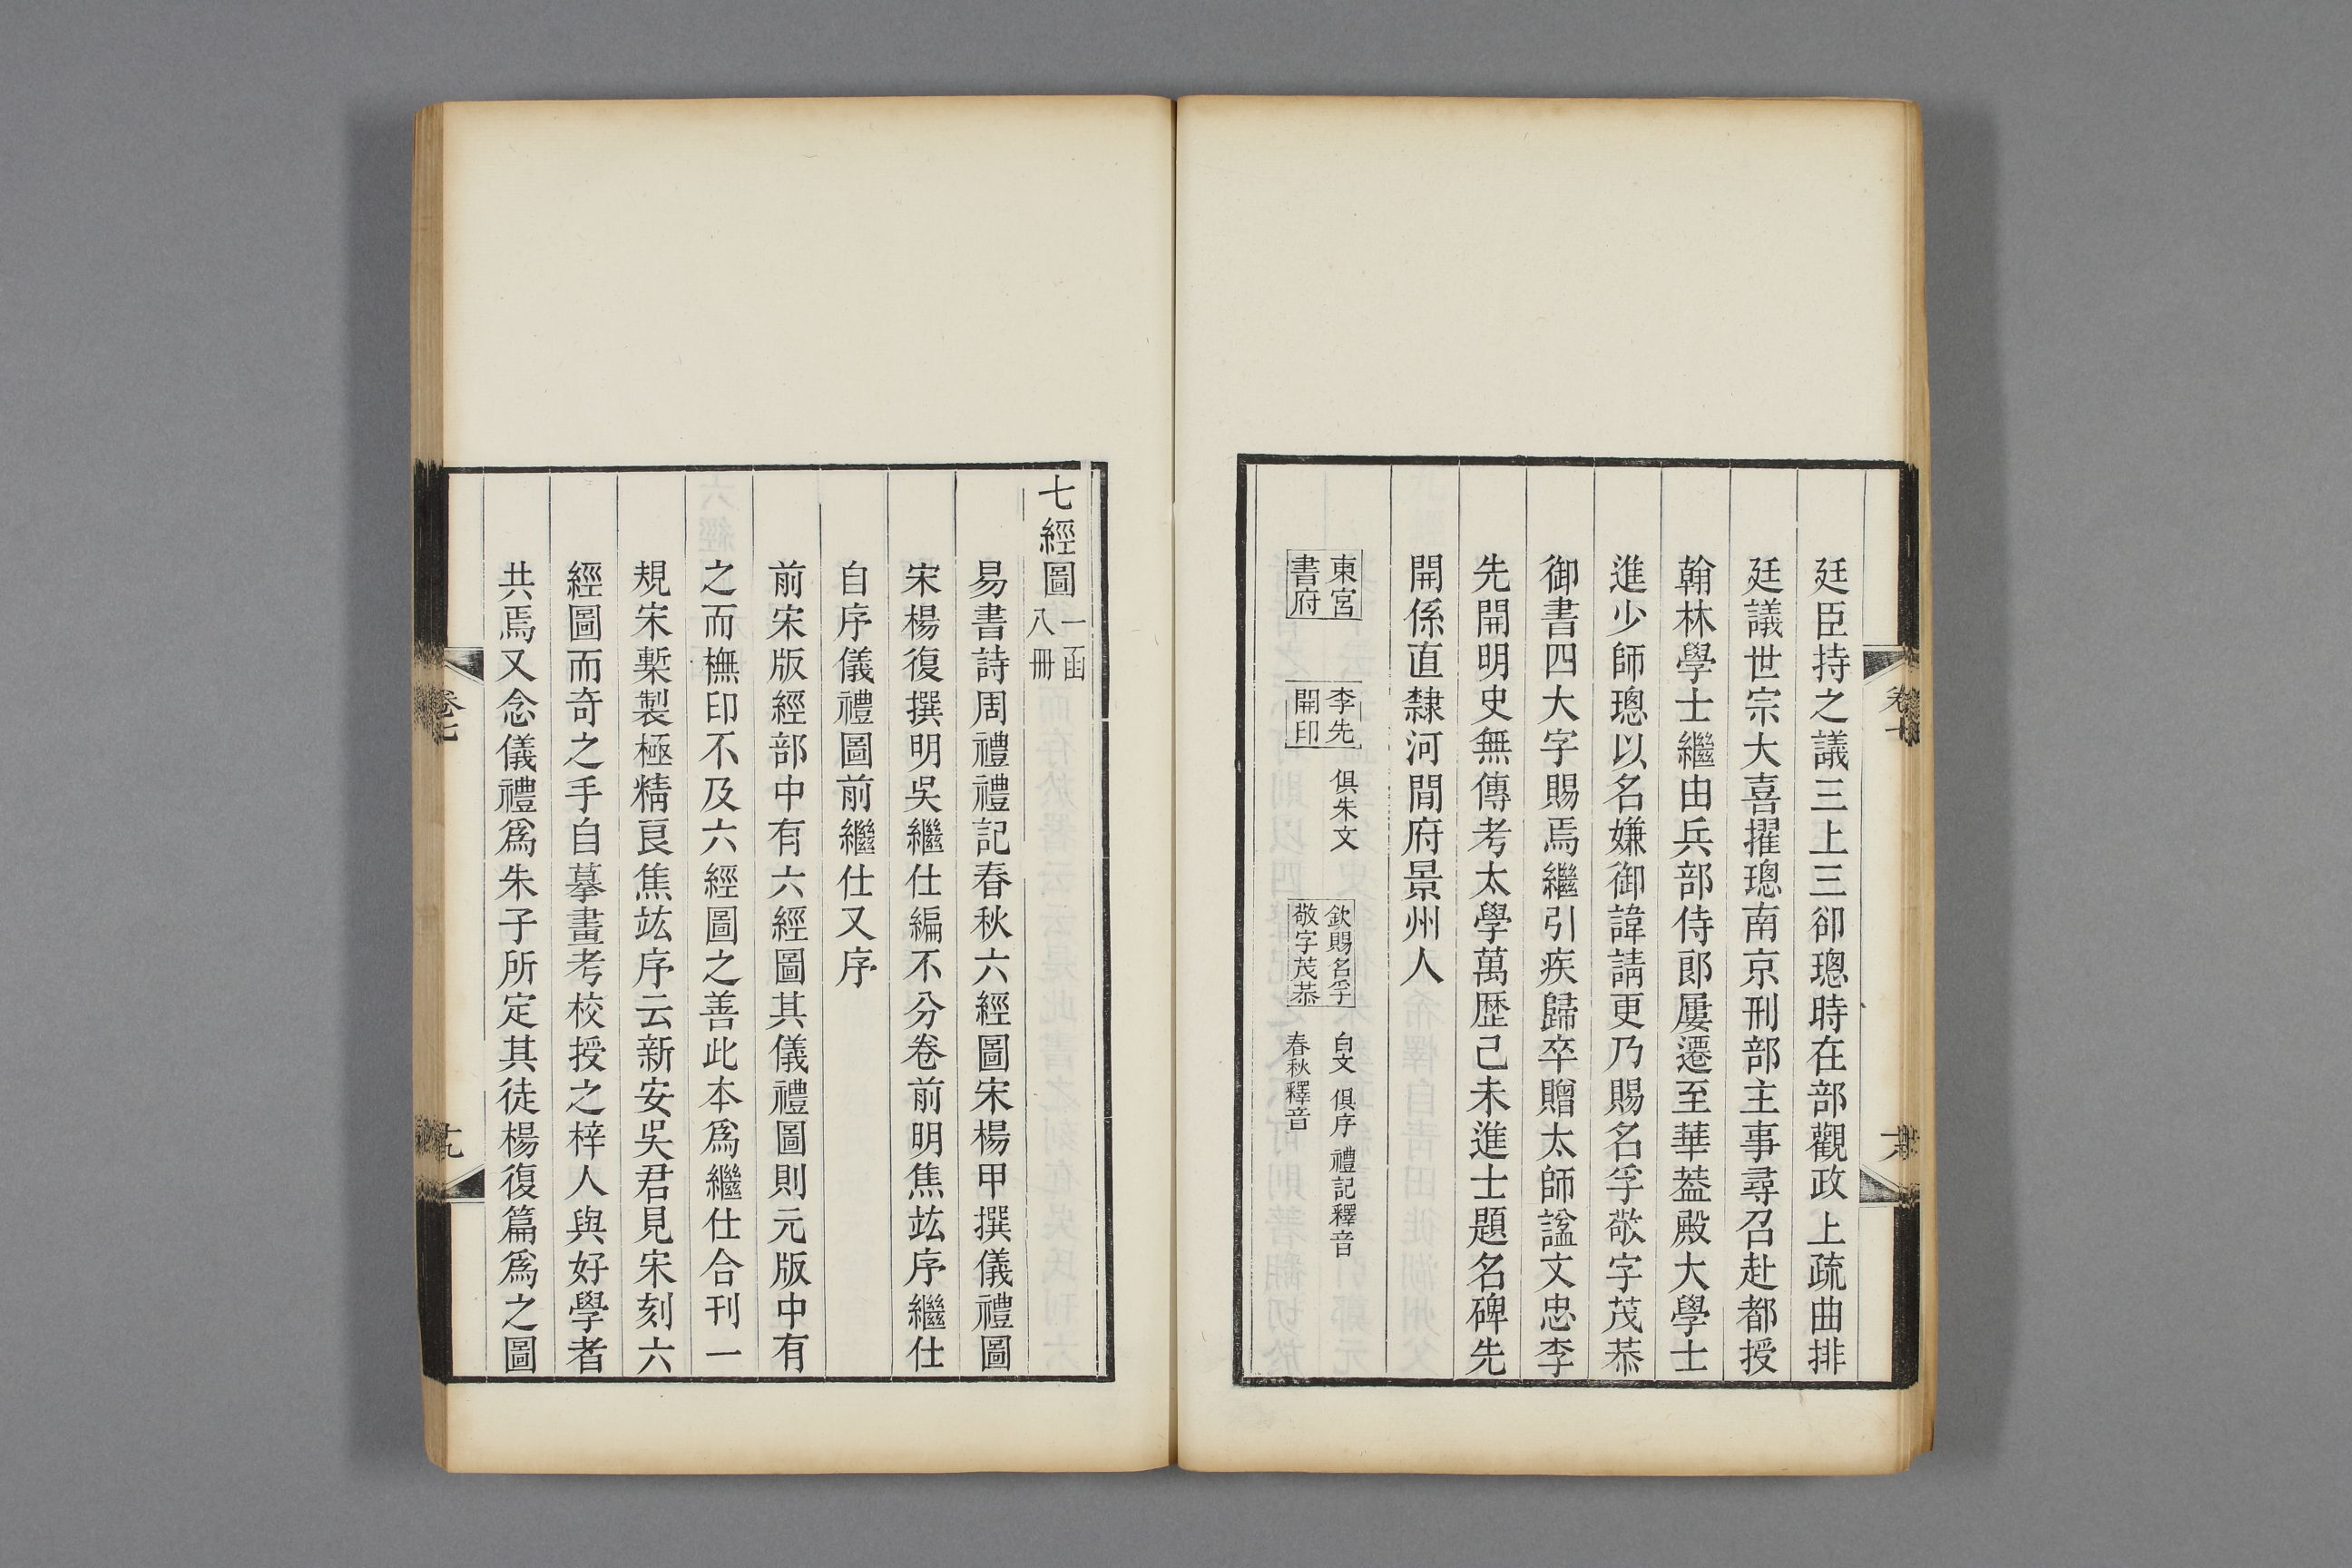 廷臣持之議三上三卻璁時在部觀政上疏曲排
廷議世宗大喜擢璁南京刑部主事尋召赴都授
翰林學士繼由兵部侍郎屢遷至華葢殿大學士
進少師璁以名嫌御諱請更乃賜名孚敬字茂恭
御書四大字賜焉繼引疾歸卒贈太師諡文忠李
先開明史無傳考太學萬歷己未進士題名碑先
開係直隸河間府景州人
東宮
書府
李先
開印
俱朱文
欽賜名孚
敬字茂恭
白文
俱序
禮記釋音
春秋釋音
七經圖
一函
八冊
易書詩周禮禮記春秋六經圖宋楊甲撰儀禮圖
宋楊復撰明吳繼仕編不分卷前明焦竑序繼仕
自序儀禮圖前繼仕又序
前宋版經部中有六經圖其儀禮圖則元版中有
之而橅印不及六經圖之善此本為繼仕合刊一
規宋槧製極精良焦竑序云新安吳君見宋刻六
經圖而奇之手自摹畫考校授之梓人與好學者
共焉又念儀禮為朱子所定其徒楊復篇為之圖
卷七